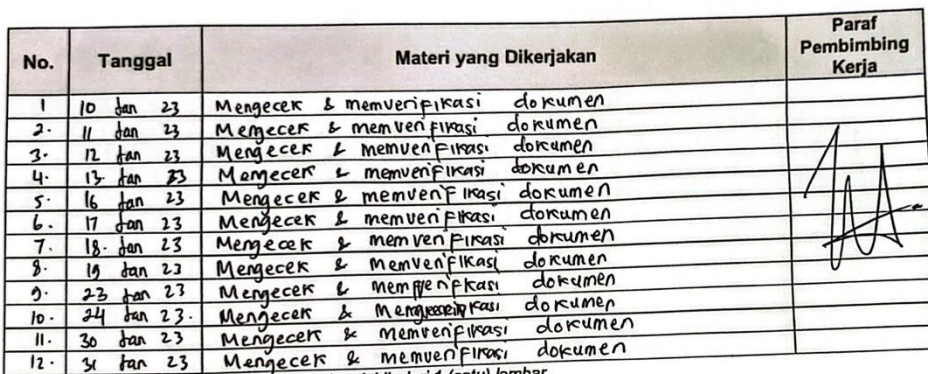 No. Tanggal Materi yang Dikerjakan Paraf Pembimbing Kerja
1 10 Jan 23 Mengecek & memverifikasi dokumen
2. 11 Jan 23 Mengecek & memverifikasi dokumen
3. 12 Jan 23 Mengecek & memverifikasi dokumen
4. 13. Jan 23 Mengecek & memverifikasi dokumen
5. 16 Jan 23 Mengecek & memverifikasi dokumen
6. 17 Jan 23 Mengecek & memverifikasi dokumen
7. 18. Jan 23 Mengecek & memverifikasi dokumen
8. 19 Jan 23 Mengecek & memverifikasi dokumen
9. 23 Jan 23 Mengecek & memverifikasi dokumen
10. 24 Jan 23. Mengecek & dokumen
11. 30 Jan 23 Mengecek & memverifikasi dokumen
12. 31 Jan 23 Mengecek & memverifikasi dokumen
1 (satu) lembar